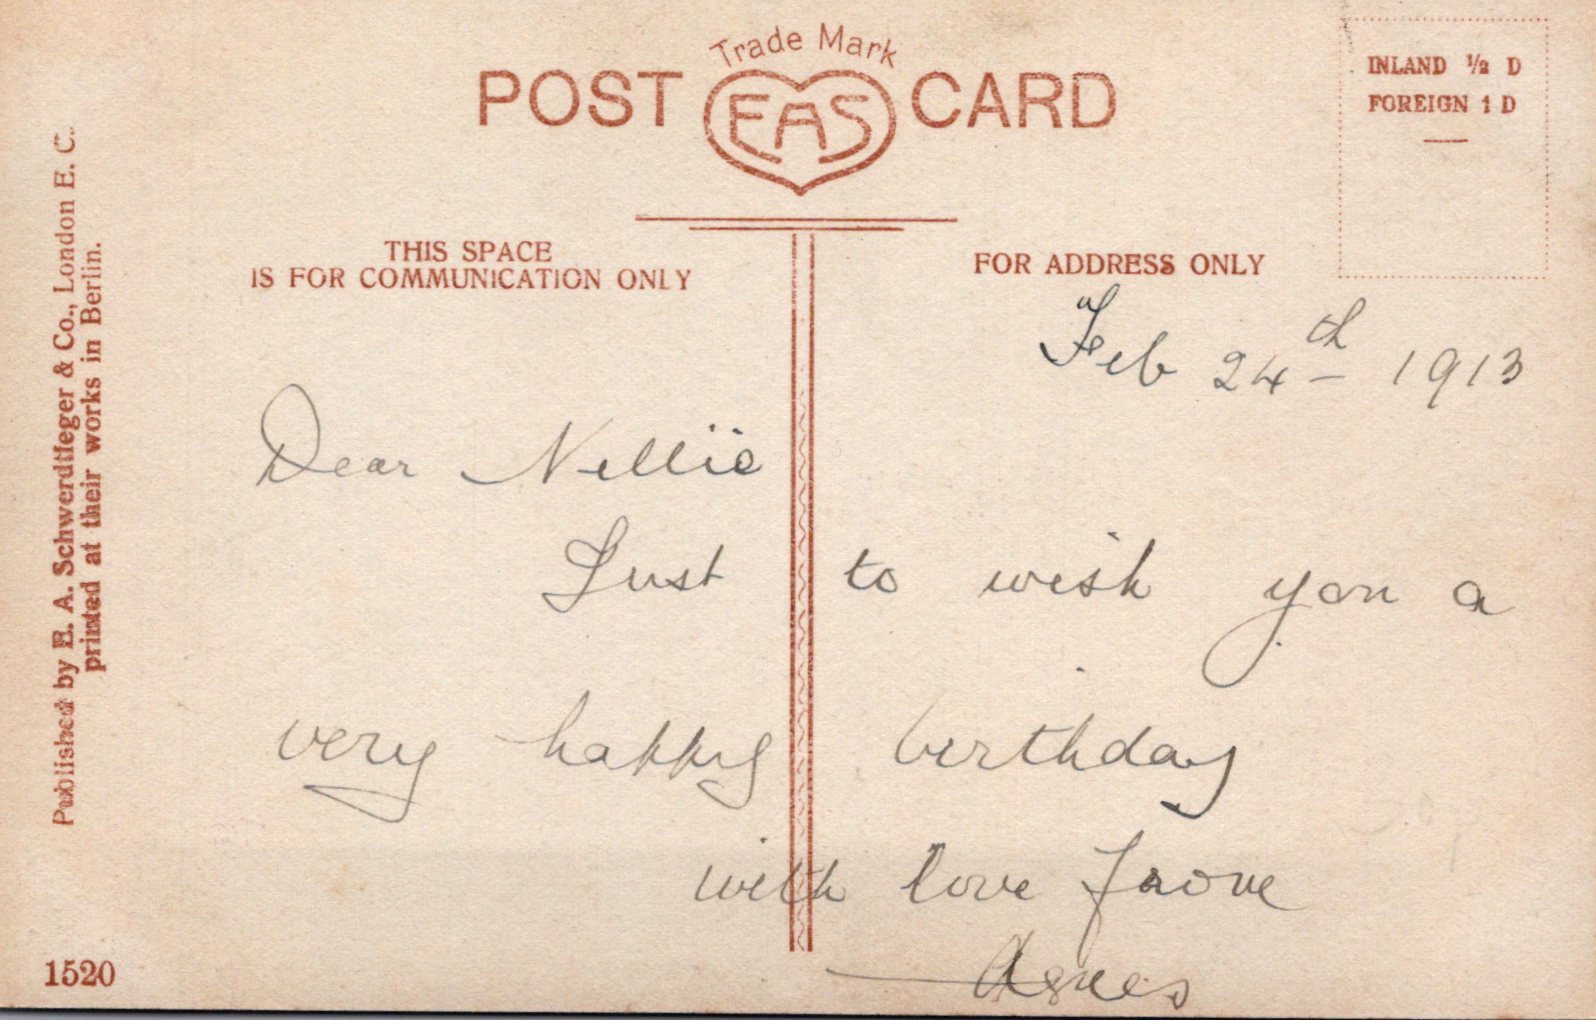 Trade Mark
POST EAS CARD
INLAND ½ D
FOREIGN 1 D
THIS SPACE
IS FOR COMMUNICATION ONLY
FOR ADDRESS ONLY
Feb 24th 1913
Dear Nellie
Just to wish you a
very happy birthday
with love from
Agnes
Published by E. A. Schwerdtfeger & Co., London E. C.
printed at their works in Berlin.
1520